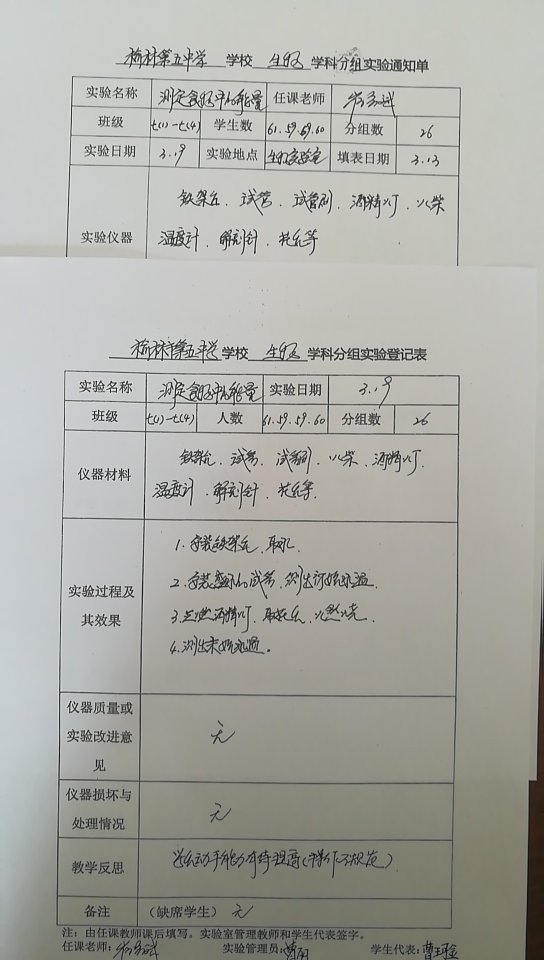 榆林第五中学 学校 生物 学科分组实验通知单
实验名称 测定食物中的能量 任课老师
班级 七(1)-七(4) 学生数 61.59.59.60 分组数 26
实验日期 3.19 实验地点 生物实验室 填表日期 3.13
铁架台、试管、试管刷、酒精灯、火柴
实验仪器 温度计、解剖针、花生等
榆林市第五中学 学校 生物 学科分组实验登记表
实验名称 测定食物中的能量 实验日期 3.19
班级 七(1)-七(4) 人数 61.59.59.60 分组数 26
仪器材料 铁架台、试管、试管刷、火柴、酒精灯、
温度计、解剖针、花生等.
实验过程及其效果
1.安装铁架台,取水.
2.安装盛水的试管,测出初始水温
3.点燃酒精灯,取花生,火燃烧
4.测出末始水温。
仪器质量或实验改进意见 无
仪器损坏与处理情况 无
教学反思 学生动手能力有待提高(操作不规范)
备注 (缺席学生) 无
注:由任课教师课后填写。实验室管理教师和学生代表签字。
任课老师: 实验管理员: 学生代表: